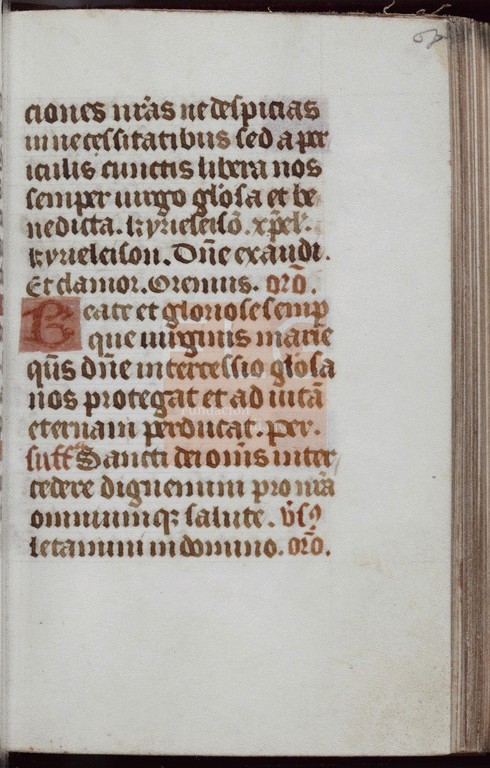 ciones nr̃as ne despicias
in necessitatibus sed a per
iculis cunctis libera nos
semper uirgo glõsa et be
nedicta. kyrieleisõ. xp̃el'.
kyrieleison. Dñe exaudi.
Et clamor. Oremus. orõ.
Beate et gloriose semp̃
que uirginis marie
qũs dñe intercessio glõsa
nos protegat et ad uitã
eternam perducat. per.
suff Sancti dei oñis inter
cedere dignemini pro nr̃a
omniumqꝫ salute. v̉sꝰ
letamini in domino. orõ.